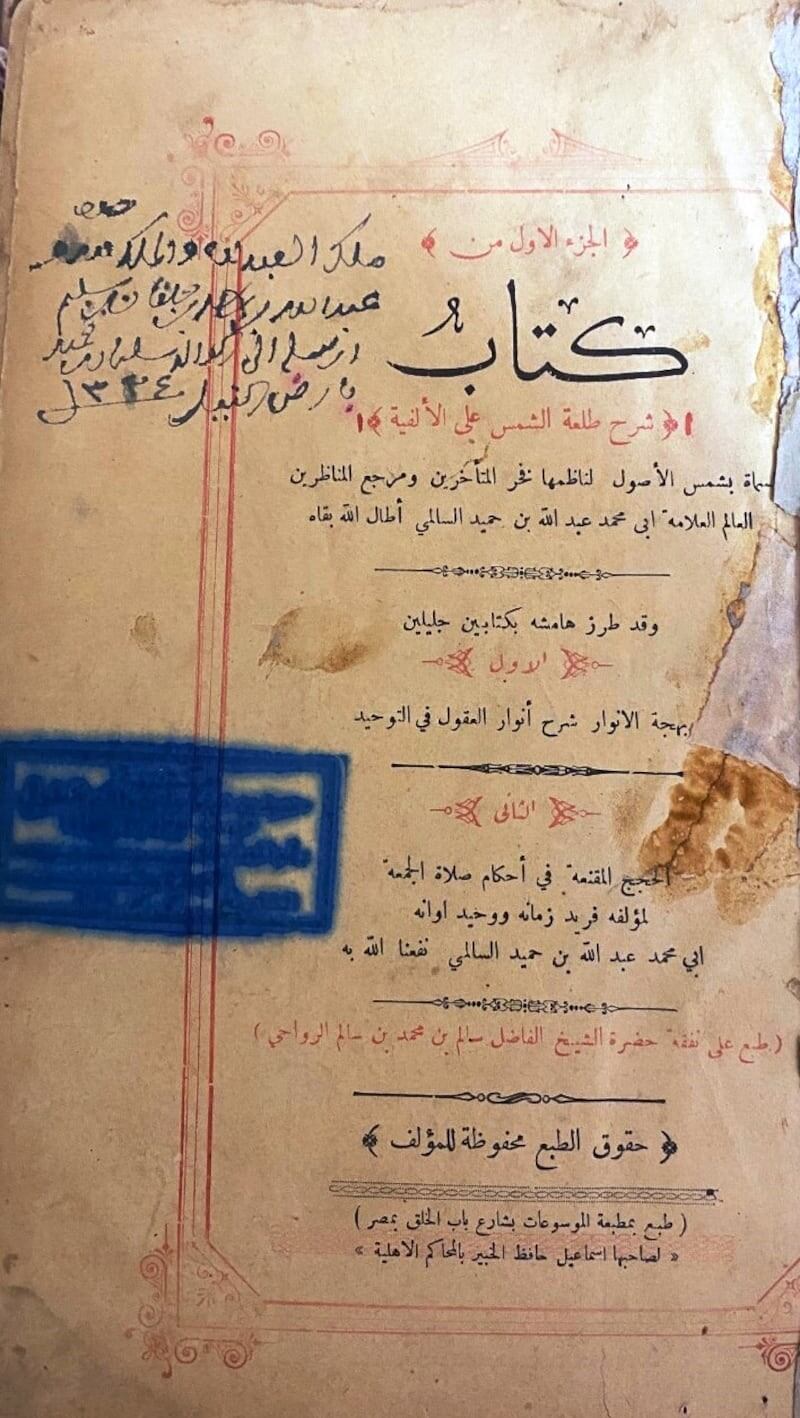 ﴿ الجزء الاول من ﴾
كتاب
﴿ شرح طلعة الشمس على الألفية ﴾
بشمس الأصول لناظمها فخر المتأخرين ومرجع المناظرين
العالم العلامة ابى محمد عبد الله بن حميد السالمي أطال الله بقاه
وقد طرز هامشه بكتابين جليلين
الاول
بهجة الانوار شرح أنوار العقول في التوحيد
الثانى
الحجج المقنعة في أحكام صلاة الجمعة
لمؤلفه فريد زمانه ووحيد اوانه
ابي محمد عبد الله بن حميد السالمي نفعنا الله به
( طبع على نفقة حضرة الشيخ الفاضل سالم بن محمد بن سالم الرواحي )
﴿ حقوق الطبع محفوظة للمؤلف ﴾
( طبع بمطبعة الموسوعات بشارع باب الخلق بمصر )
« لصاحبها اسماعيل حافظ الخبير بالمحاكم الاهلية »
ملك العبد لله والملك
عبدالله
١٣٢٤